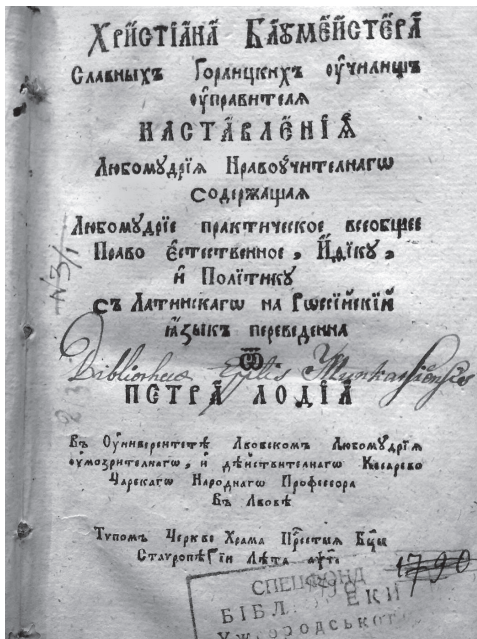 Хрїстїана Баѵмейстера
Славныхъ Горлицкихъ оучилищъ
оуправителя
НАСТАВЛЕНІЯ
Любомудрїя Нравоучителнагѡ
содержащая
Любомудрїе практическое всеобщее
Право Єстественное, Иѳїку,
и Полїтику
съ Латинскагѡ на Рѡссїйскїй
ꙗзыкъ переведенна
Ѿ
Bibliothecae Epplis Munkacsiensis
ПЕТРА ЛОДІА
Въ Оуниверситетѣ Лвовскомъ Любомудрїя
оумозрителнагѡ, и дѣйствителнагѡ Кесарево
Царскагѡ Народнагѡ Профессора
въ Лвовѣ
Тѵпомъ Черкве Храма Престыя Бцы
Ставропѣгїи Лѣта
1790
СПЕЦФОНД
БІБЛ ЕКИ
УЖГОРОДСЬКОГ
№3/1